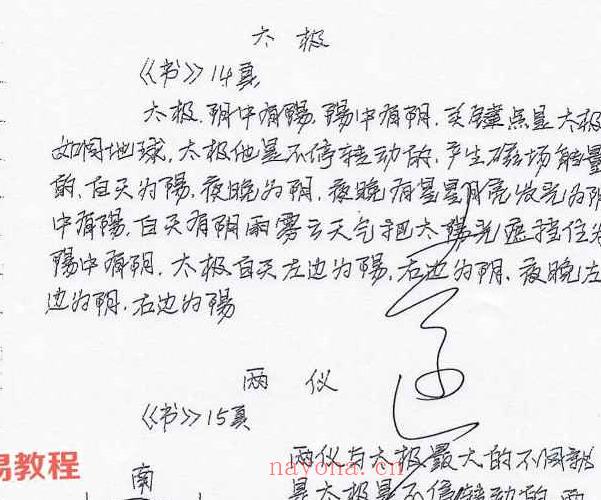 太极
《书》14真
太极.阴中有陽.陽中有阴.关键点是太极
如同地球.太极他是不停转动的.产生磁场能量
的.白天为陽.夜晚为阴.夜晚有星星月亮发光为阴
中有陽.白天有阴雨雾云天气把太陽光遮挡住为
陽中有阴.太极白天左边为陽.右边为阴.夜晚左
边为阴.右边为陽
两仪
《书》15真
易教程
南
nayona.cn
两仪与太极最大的不同就
是太极是不停转动的.两